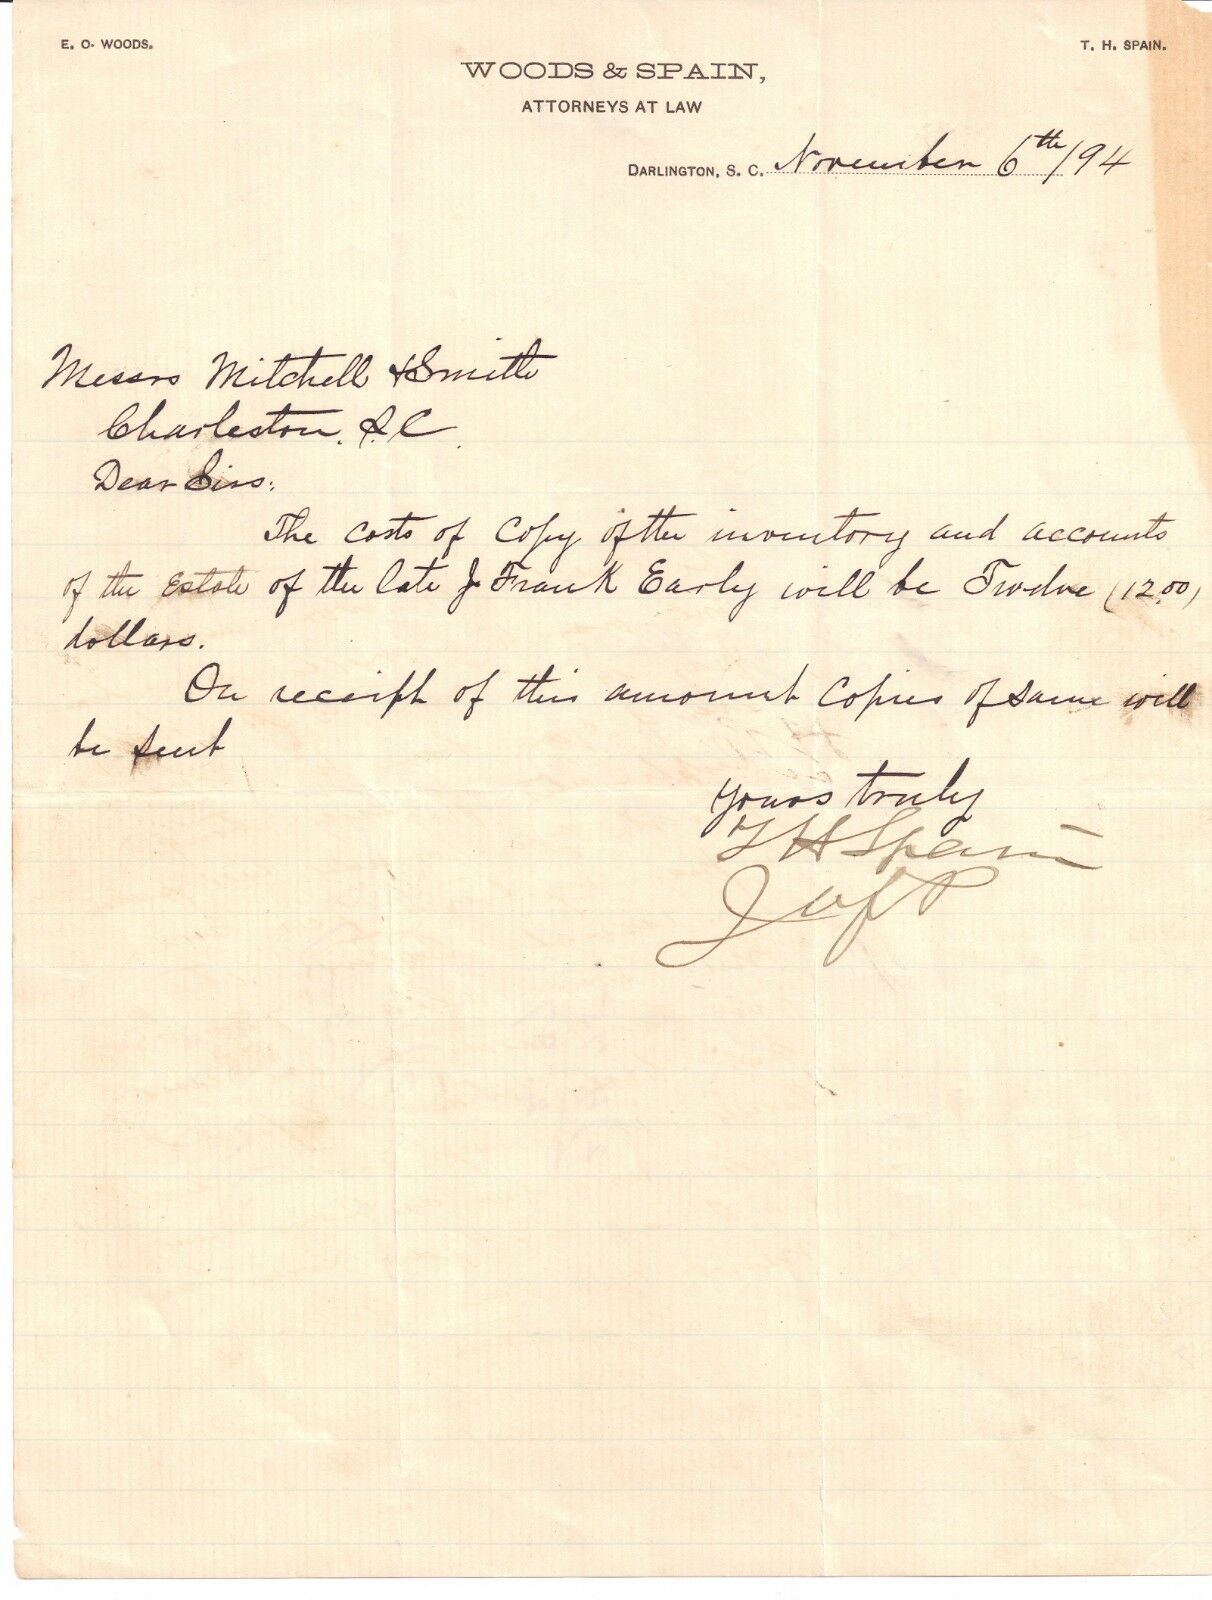 E. O. WOODS.
T. H. SPAIN.
WOODS & SPAIN,
ATTORNEYS AT LAW
DARLINGTON, S. C. November 6th/94
Messrs Mitchell & Smith
Charleston, S.C.
Dear Sirs:
The costs of Copy of the inventory and accounts
of the Estate of the late J Frank Early will be Twelve (12.00)
dollars.
On receipt of this amount Copies of same will
be sent
Yours truly
T H Spain